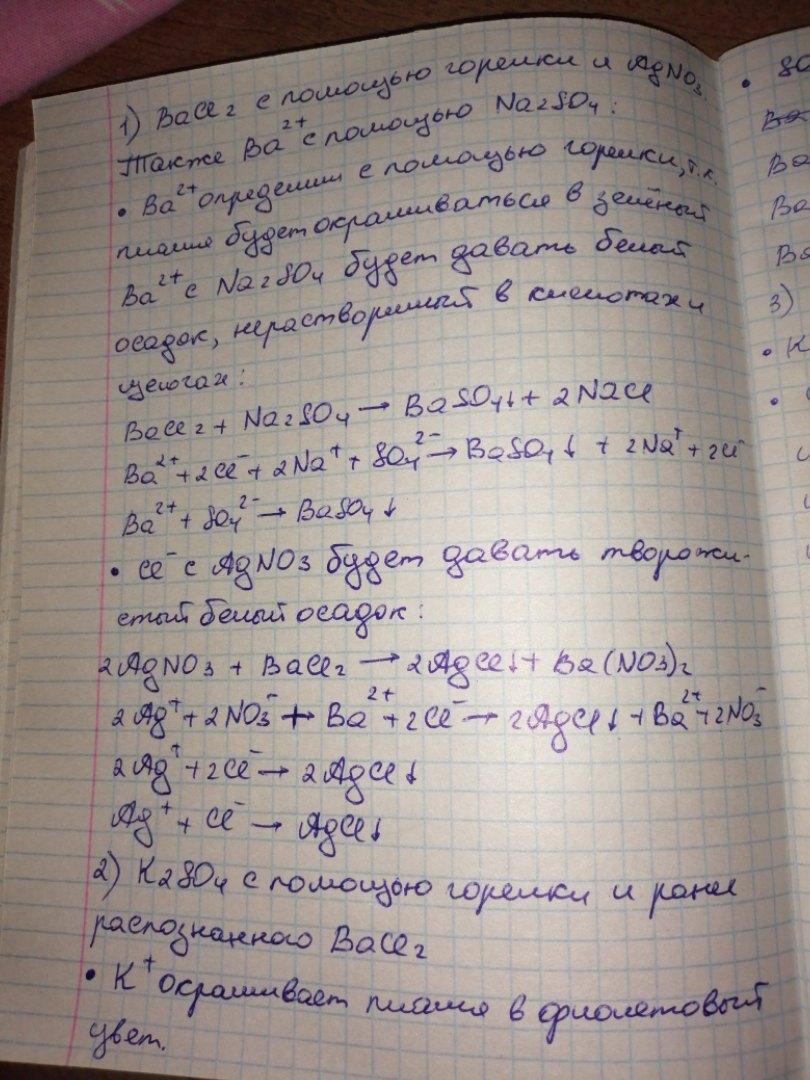 1) BaCl2 с помощью горелки и AgNO3.
Также Ba2+ с помощью Na2SO4:
• Ba2+ определили с помощью горелки, т.к.
пламя будет окрашиваться в зелёный
Ba2+ с Na2SO4 будет давать белый
осадок, нерастворимый в кислотах и
щелочах:
BaCl2 + Na2SO4 → BaSO4↓ + 2NaCl
Ba2+ + 2Cl- + 2Na+ + SO42- → BaSO4↓ + 2Na+ + 2Cl-
Ba2+ + SO42- → BaSO4↓
• Cl- с AgNO3 будет давать творожи-
стый белый осадок:
2AgNO3 + BaCl2 → 2AgCl↓ + Ba(NO3)2
2Ag+ + 2NO3- + Ba2+ + 2Cl- → 2AgCl↓ + Ba2+ + 2NO3-
2Ag+ + 2Cl- → 2AgCl↓
Ag+ + Cl- → AgCl↓
2) K2SO4 с помощью горелки и ранее
распознанного BaCl2
• K+ окрашивает пламя в фиолетовый
цвет.
• SO
Ba
Ba
Ba
3)
• K
•